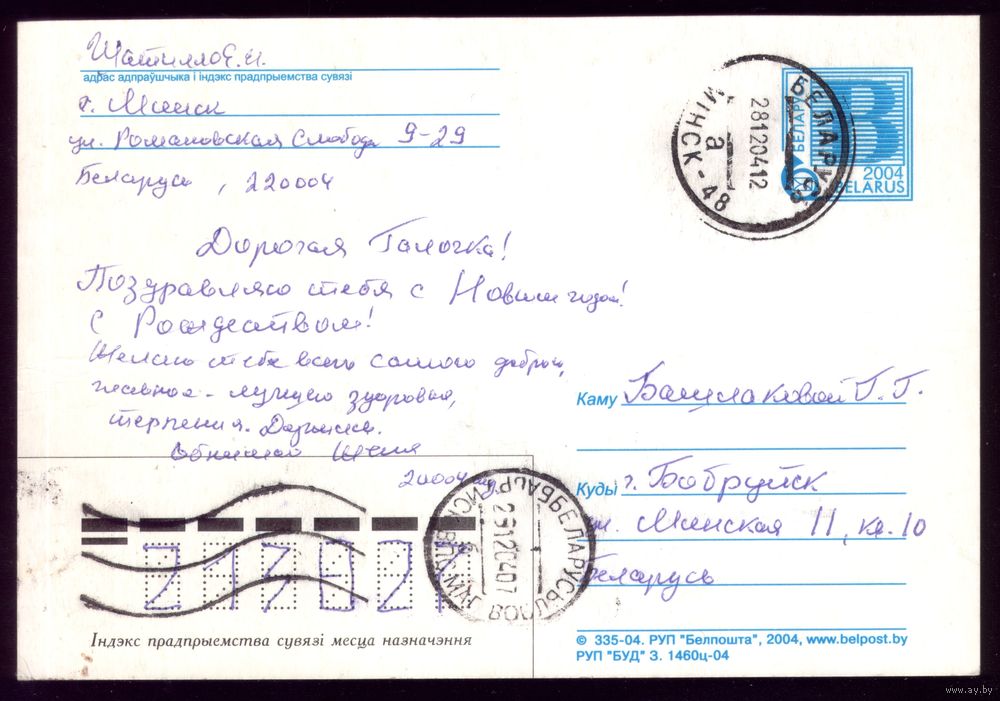 Шатилло Е.И.
адрас адпраўшчыка і індэкс прадпрыемства сувязі
г. Минск
ул. Романовская Слобода 9-29
Беларусь, 220004
БЕЛАРУСЬ
МІНСК-48
а
28120412
БЕЛАРУСЬ
B
2004
BELARUS
Дорогая Галочка!
Поздравляю тебя с Новым годом!
С Рождеством!
Желаю тебе всего самого доброго,
главное - лучшего здоровья,
терпения.
Обнимаю
2004
Каму Башлаковой Г.Г.
Куды г. Бобруйск
ул. Минская 11, кв. 10
Беларусь
БЕЛАРУСЬ
29120407
213821
Індэкс прадпрыемства сувязі месца назначэння
© 335-04. РУП "Белпошта", 2004, www.belpost.by
РУП "БУД" З. 1460ц-04
www.ay.by